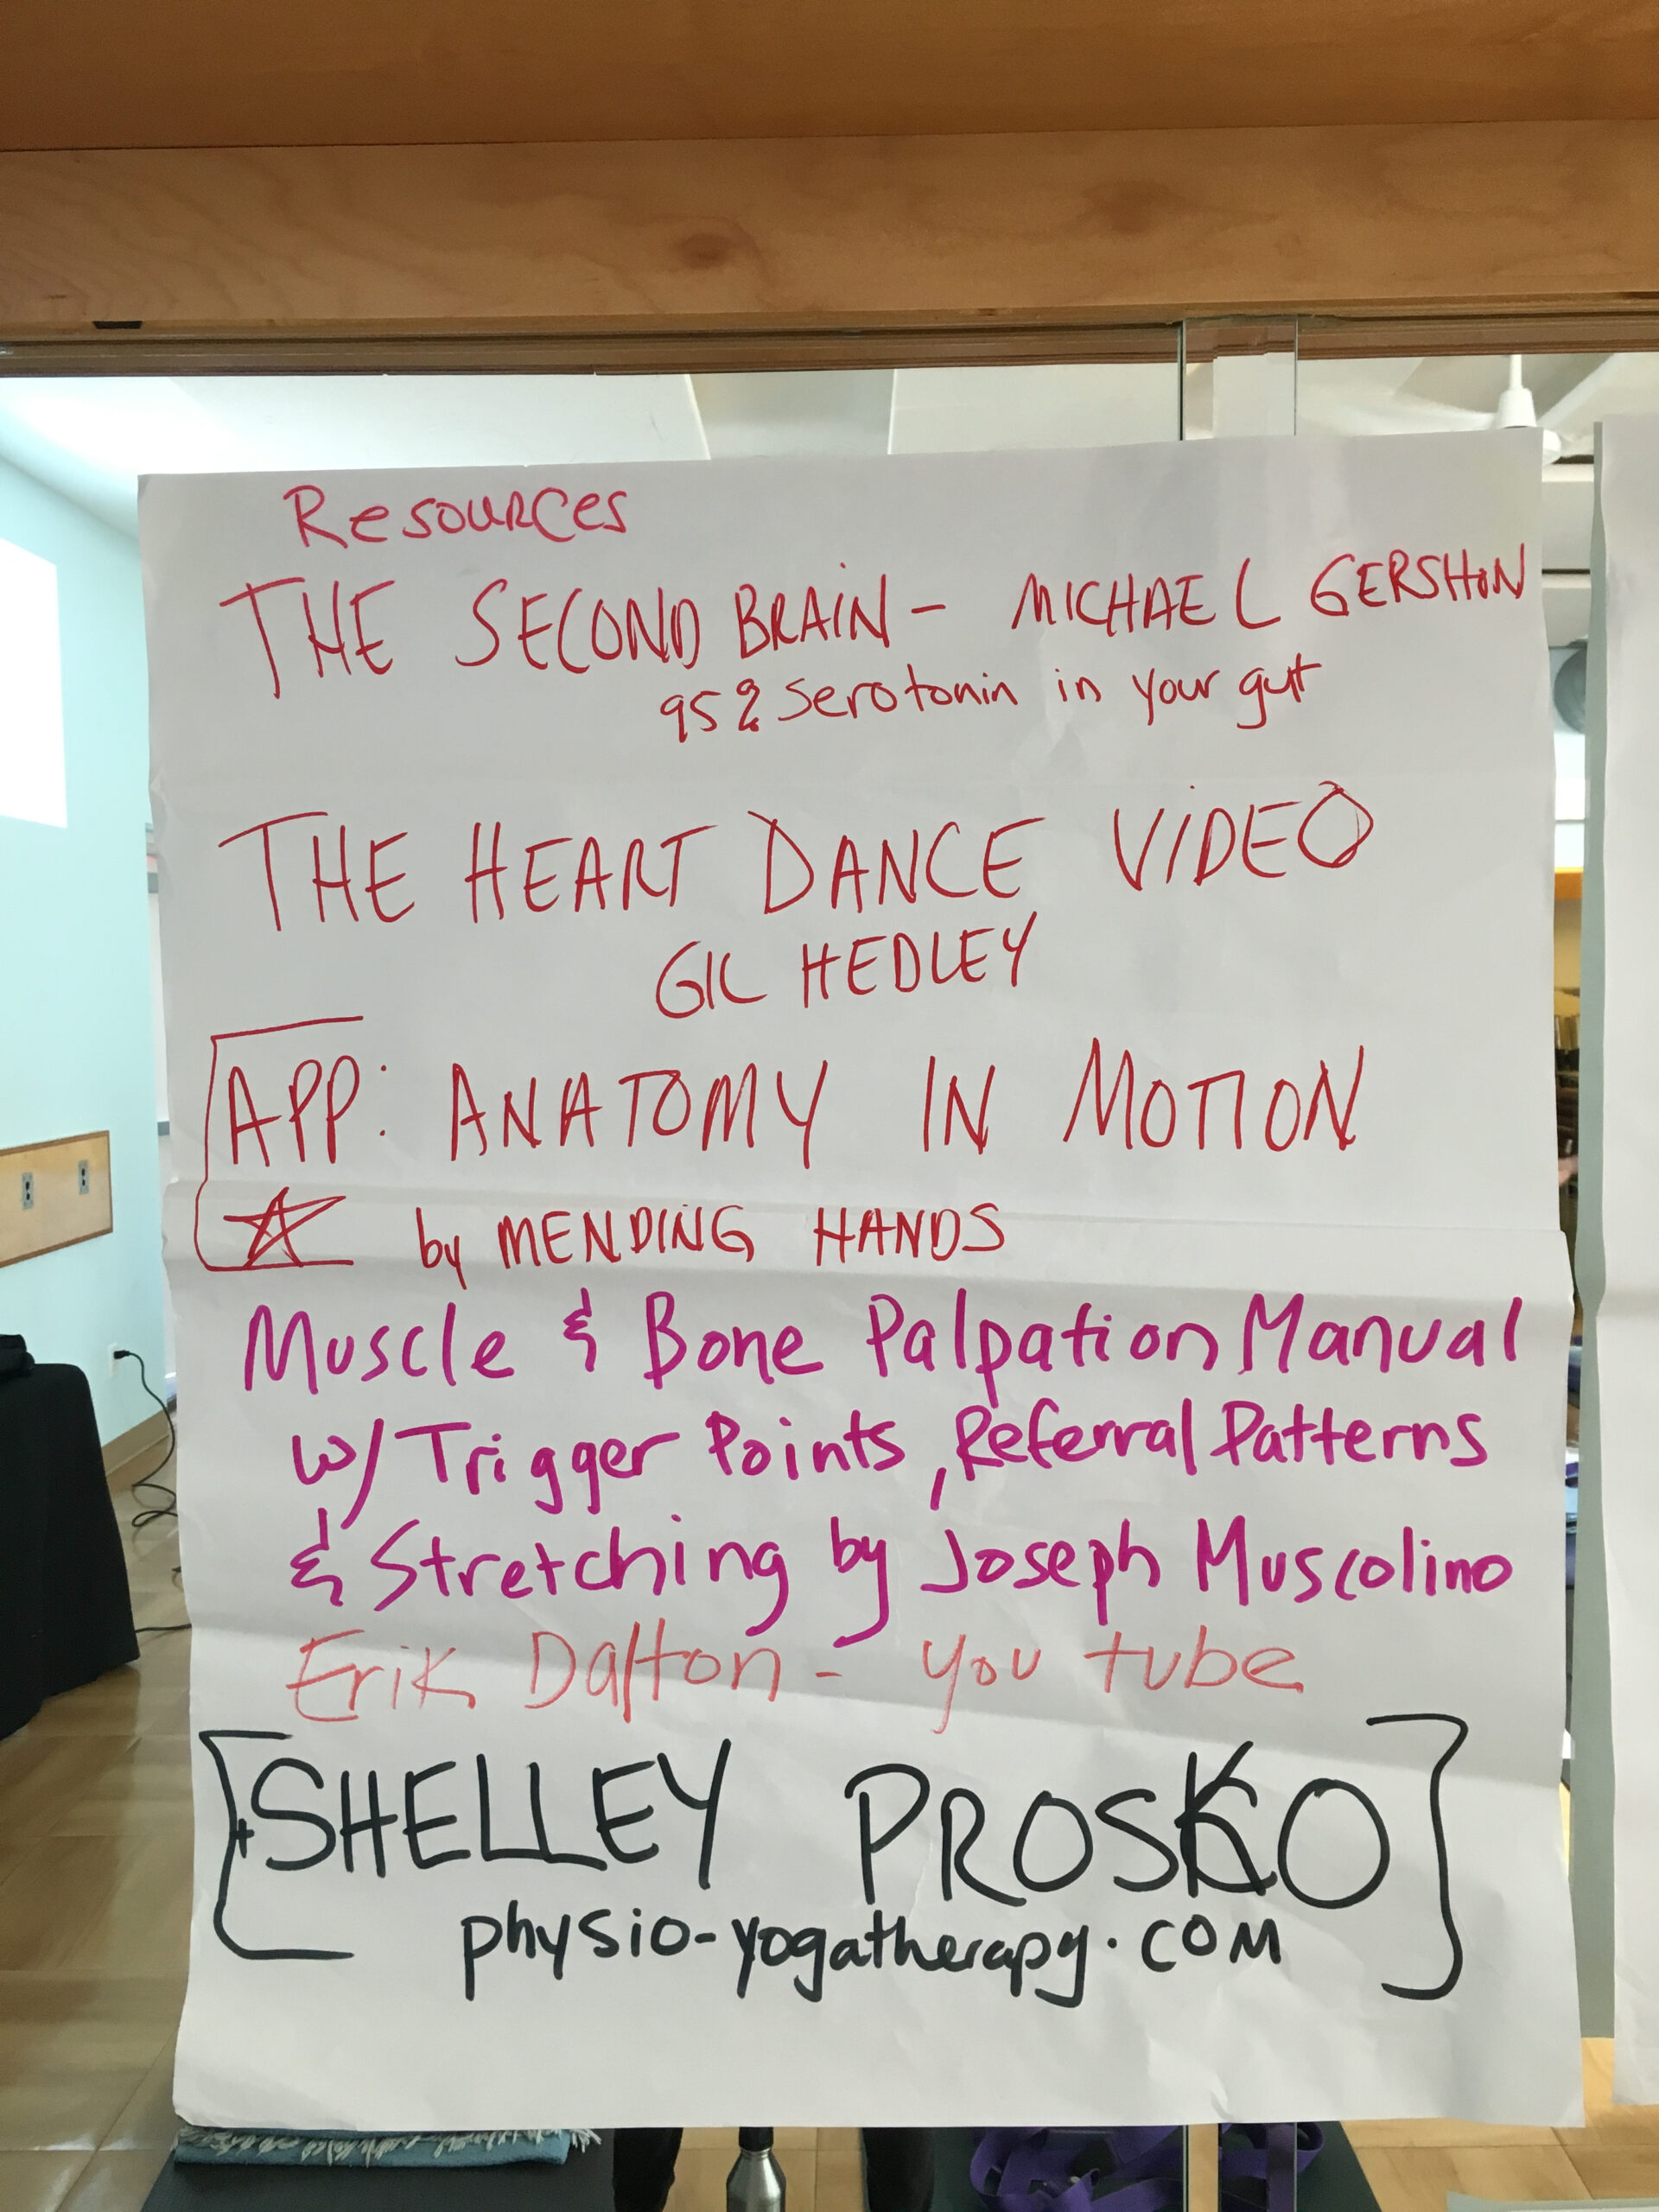 Resources
THE SECOND BRAIN - MICHAEL GERSHON
95% serotonin in your gut
THE HEART DANCE VIDEO
GIL HEDLEY
APP: ANATOMY IN MOTION
by MENDING HANDS
Muscle & Bone Palpation Manual
w/ Trigger Points, Referral Patterns
& Stretching by Joseph Muscolino
Erik Dalton - you tube
SHELLEY PROSKO
physio-yogatherapy.com